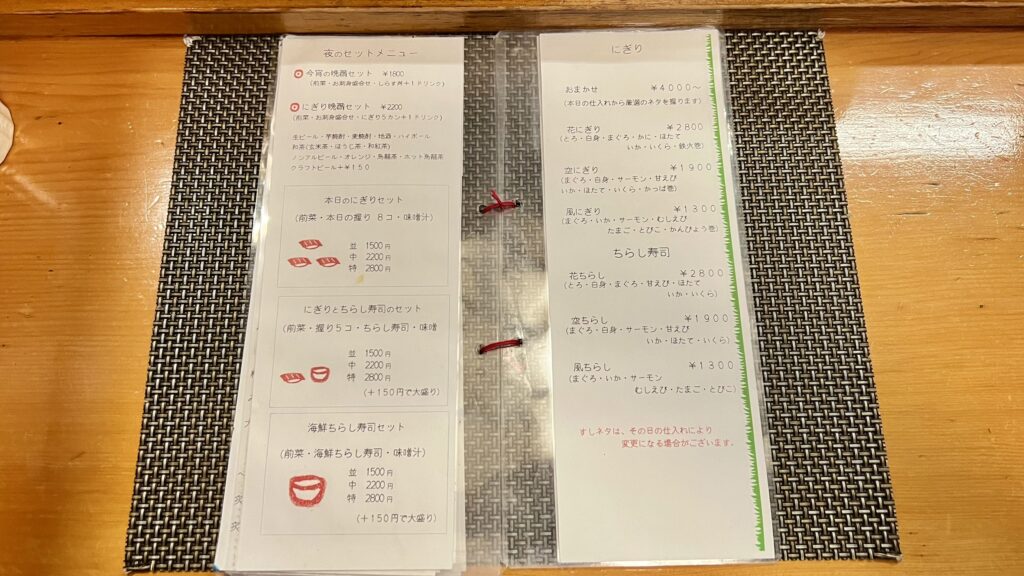 夜のセットメニュー
今宵の晩酌セット ¥1800
(前菜・お刺身盛合せ・しらす丼+1ドリンク)
にぎり晩酌セット ¥2200
(前菜・お刺身盛合せ・にぎり5カン+1ドリンク)
生ビール・芋焼酎・麦焼酎・地酒・ハイボール
和茶(玄米茶・ほうじ茶・和紅茶)
ノンアルビール・オレンジ・烏龍茶・ホット烏龍茶
クラフトビール+¥150
本日のにぎりセット
(前菜・本日の握り 8コ・味噌汁)
並 1500円
中 2200円
特 2800円
にぎりとちらし寿司のセット
(前菜・握り5コ・ちらし寿司・味噌
並 1500円
中 2200円
特 2800円
(+150円で大盛り)
海鮮ちらし寿司セット
(前菜・海鮮ちらし寿司・味噌汁)
並 1500円
中 2200円
特 2800円
(+150円で大盛り)
にぎり
おまかせ ¥4000~
(本日の仕入れから厳選のネタを握ります)
花にぎり ¥2800
(とろ・白身・まぐろ・かに・ほたて
いか・いくら・鉄火巻)
空にぎり ¥1900
(まぐろ・白身・サーモン・甘えび
いか・ほたて・いくら・かっぱ巻)
風にぎり ¥1300
(まぐろ・いか・サーモン・むしえび
たまご・とびこ・かんぴょう巻)
ちらし寿司
花ちらし ¥2800
(とろ・白身・まぐろ・甘えび・ほたて
いか・いくら)
空ちらし ¥1900
(まぐろ・白身・サーモン・甘えび
いか・ほたて・いくら)
風ちらし ¥1300
(まぐろ・いか・サーモン
むしえび・たまご・とびこ)
すしネタは、その日の仕入れにより
変更になる場合がございます。